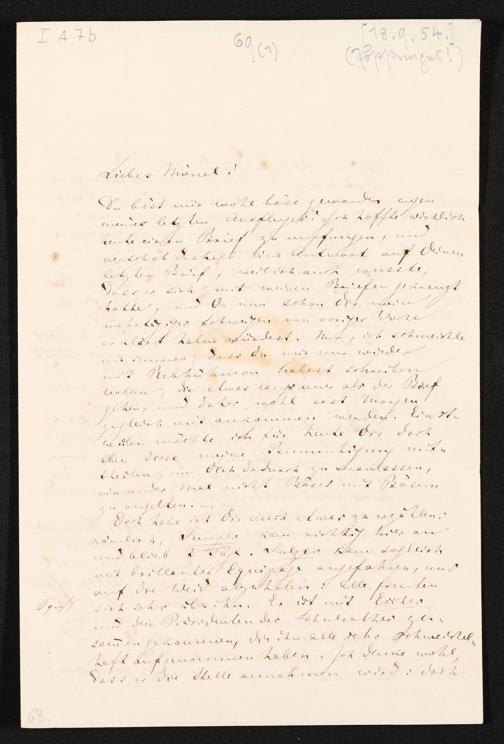 I A 7b
69 (1)
[18.9.54.]
Liebes Mienel!
Du bist mir wohl böse geworden wegen
meines letzten Ausfluges? Ich hoffte wirklich
heute einen Brief zu empfangen, und
verschob deshalb eine Antwort auf Deinen
letzten Brief, weil ich auch wusste,
dass er sich mit meinen Briefen gekreuzt
hatte, und Du nun schon Dir mein
Schweigen von voriger Woche
erklärt haben würdest. Nun, ich schmeichle
mir immer, dass Du mir nun wieder
mit Rebhühnern habest schreiben
wollen, die etwas langsamer als der Brief
gehen, und daher wohl erst Morgen
zugleich mit ankommen werden. Einst-
weilen möchte ich für heute Dir doch
eben diese meine Vermuthung mit-
theilen, um Dich dadurch zu veranlassen,
ein ander Mal nicht Böses mit Bösem
zu vergelten. —
Doch habe ich Dir auch etwas zu erzählen:
nämlich, Semper kam richtig hier an
und blieb 2 Tage. Sulzer kam sogleich
mit brillanter Equipage angefahren, und
auf die Weid abzuholen: alle freuten
sich sehr über ihn. Er ist mit Escher
und dem Präsidenten des Schulrathes zu-
sammengekommen, die ihn alle sehr schmeichel-
haft aufgenommen haben. Ich denke wohl,
dass er die Stelle annehmen wird: doch
68.